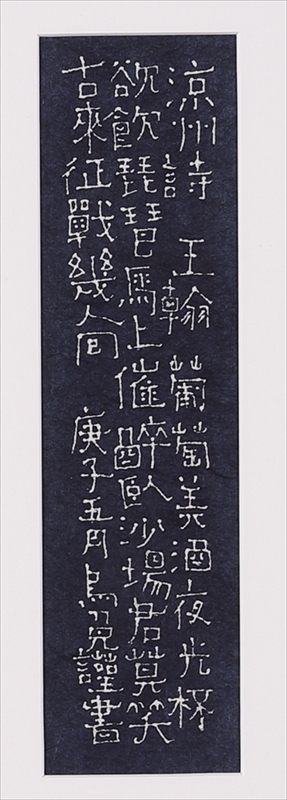 涼州詩 王翰 葡萄美酒夜光杯
欲飲琵琶馬上催醉臥沙場君莫笑
古來征戰幾人回 庚子五月謹書